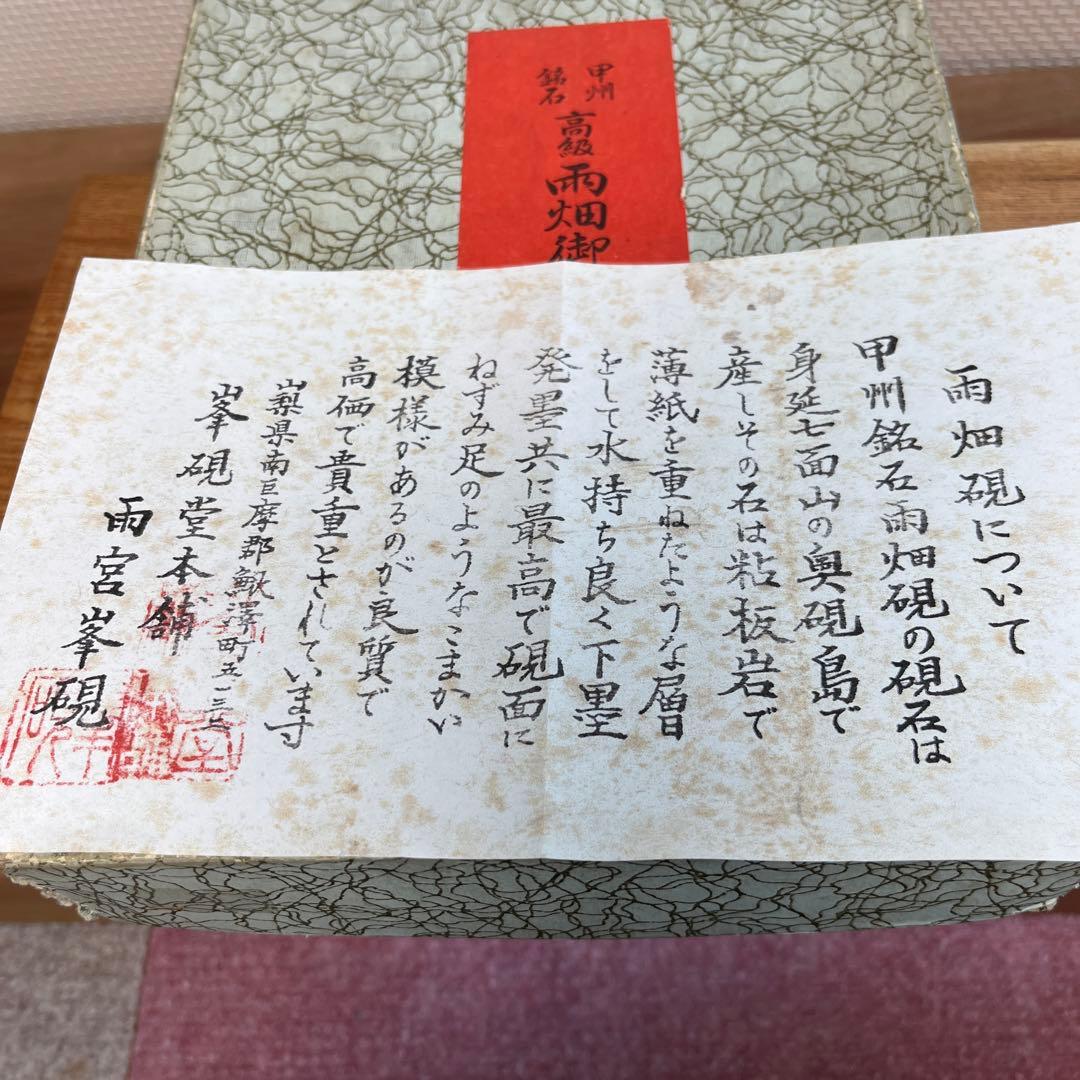 甲州
銘石
高級
雨畑御
雨畑硯について
甲州銘石雨畑硯の硯石は
身延七面山の奥硯島で
産しその石は粘板岩で
薄紙を重ねたような層
をして水持ち良く下墨
発墨共に最高で硯面に
ねずみ足のようなこまかい
模様があるのが良質で
高価で貴重とされています
山梨県南巨摩郡鰍澤町五三
峯硯堂本舗
雨宮峯硯